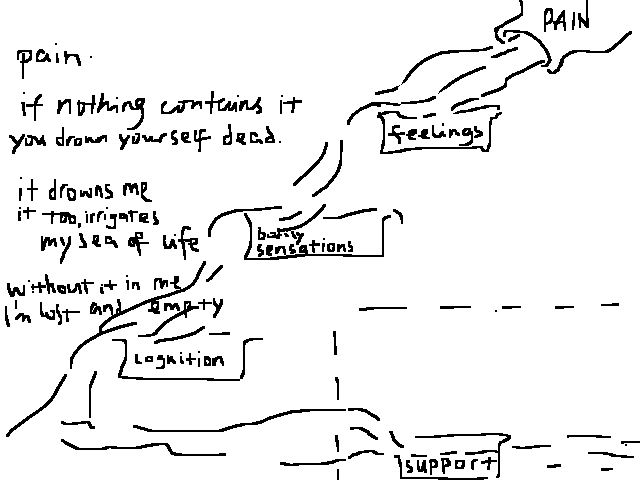 PAIN
pain.
if nothing contains it
you drown yourself dead.
feelings
it drowns me
it too, irrigates
my sea of life
bodily
sensations
without it in me
i'm lost and empty
cognition
support